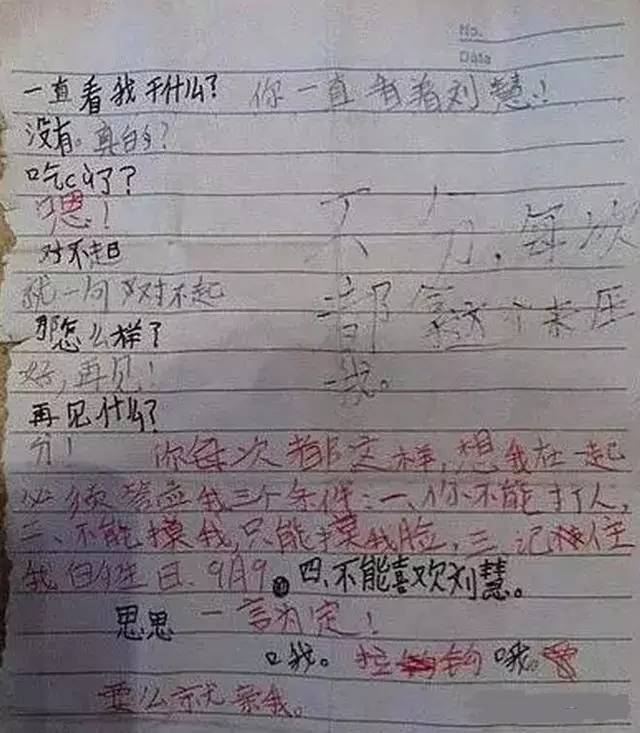 No.
Date
一直看我干什么? 你一直看着刘慧!
没有。真的?
吃cù了?
嗯!
不分,每次
对不起
就一句对不起
都拿这个来压
那怎么样?
好,再见!
我。
再见什么?
分! 你每次都这样,想我在一起
必须答应我三个条件:一、你不能打人,
二、不能摸我,只能摸我脸,三、记住
我的生日.9月9。四、不能喜欢刘慧。
思思 一言为定!
哦。拉钩哦。
要么就亲我。